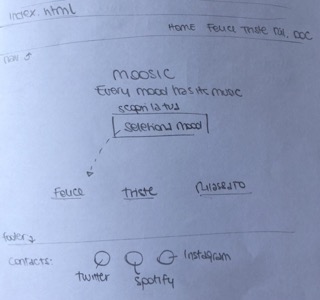 index.html
Home Felice Triste Ril. DOC
nav
MOOSIC
Every mood has its music
scopri la tua
Seleziona mood
Felice
Triste
Rilassato
footer
Contacts:
Instagram
twitter
spotify